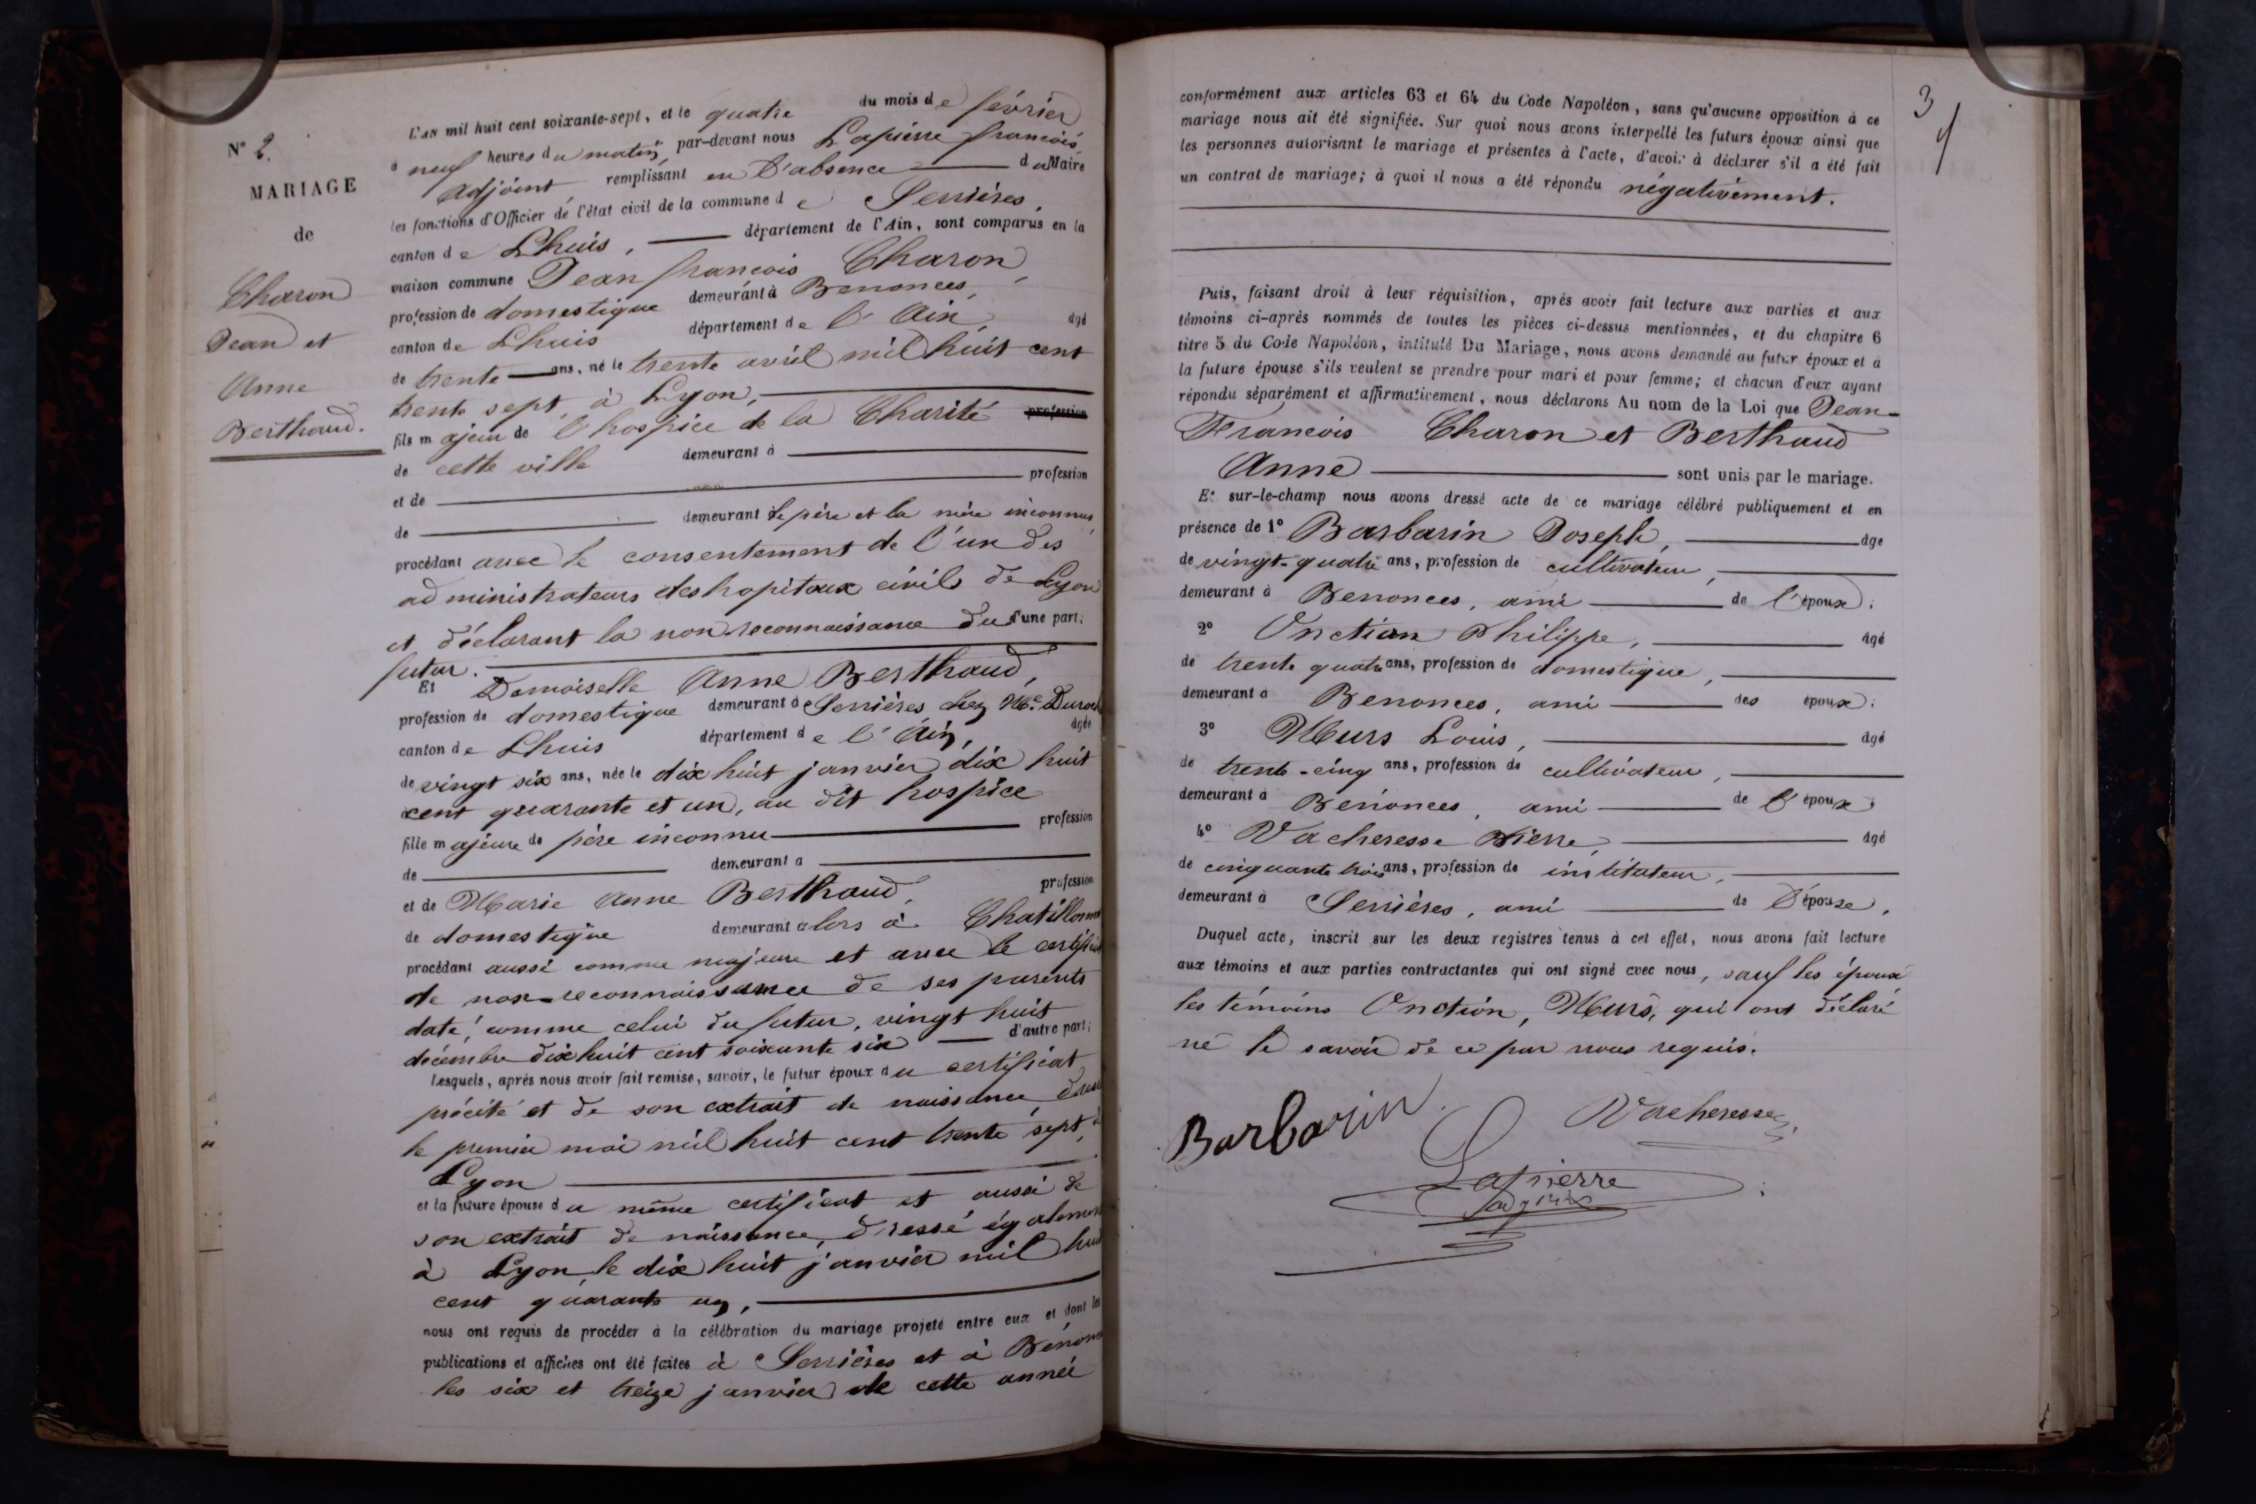 N° 2.
MARIAGE
de
Charon
Jean et
Anne
Berthaud.
L'AN mil huit cent soixante-sept, et le quatre du mois de février
à neuf heures du matin, par-devant nous Lapierre françois,
adjoint remplissant en l'absence du Maire
les fonctions d'Officier de l'état civil de la commune de Serrières,
canton de Lhuis, département de l'Ain, sont comparus en la
maison commune Jean françois Charon,
profession de domestique demeurant à Benonces,
canton de Lhuis département de l'Ain, âgé
de trente ans, né le trente avril mil huit cent
trente sept, à Lyon,
fils majeur de l'hospice de la Charité profession
de cette ville demeurant à
et de profession
de demeurant le père et la mère inconnus,
procédant avec le consentement de l'un des
administrateurs des hopitaux civils de Lyon
et déclarant la non reconnaissance du d'une part;
futur.
Et Demoiselle Anne Berthaud,
profession de domestique demeurant à Serrières chez Mr.
canton de Lhuis département de l'Ain, âgée
de vingt six ans, née le dix huit janvier dix huit
cent quarante et un, au dit hospice
fille majeure de père inconnu profession
de demeurant à
et de Marie Anne Berthaud, profession
de domestique demeurant alors à
procédant aussi comme majeure et avec le certificat
de non-reconnaissance de ses parents
daté, comme celui du futur, vingt huit
décembre dix huit cent soixante six d'autre part;
Lesquels, après nous avoir fait remise, savoir, le futur époux du certificat
précité et de son extrait de naissance,
le premier mai mil huit cent trente sept, à
Lyon
et la future épouse du même certificat et aussi de
son extrait de naissance, dressé également
à Lyon, le dix huit janvier mil huit
cent quarante un,
nous ont requis de procéder à la célébration du mariage projeté entre eux et dont les
publications et affiches ont été faites à Serrières et à Bénonces
les six et treize janvier de cette année
3
conformément aux articles 63 et 64 du Code Napoléon, sans qu'aucune opposition à ce
mariage nous ait été signifiée. Sur quoi nous avons interpellé les futurs époux ainsi que
les personnes autorisant le mariage et présentes à l'acte, d'avoir à déclarer s'il a été fait
un contrat de mariage; à quoi il nous a été répondu négativement.
Puis, faisant droit à leur réquisition, après avoir fait lecture aux parties et aux
témoins ci-après nommés de toutes les pièces ci-dessus mentionnées, et du chapitre 6
titre 5 du Code Napoléon, intitulé Du Mariage, nous avons demandé au futur époux et à
la future épouse s'ils veulent se prendre pour mari et pour femme; et chacun d'eux ayant
répondu séparément et affirmativement, nous déclarons Au nom de la Loi que Jean-
François Charon et Berthaud
Anne sont unis par le mariage.
Et sur-le-champ nous avons dressé acte de ce mariage célébré publiquement et en
présence de 1° Barbarin Joseph, âgé
de vingt-quatre ans, profession de cultivateur,
demeurant à Benonces, ami de l'époux;
2° Onction Philippe, âgé
de trente quatre ans, profession de domestique,
demeurant à Benonces, ami des époux;
3° Meurs Louis, âgé
de trente-cinq ans, profession de cultivateur,
demeurant à Benonces, ami de l'époux;
4° Vacheresse Pierre, âgé
de cinquante trois ans, profession de instituteur,
demeurant à Serrières, ami de l'épouse.
Duquel acte, inscrit sur les deux registres tenus à cet effet, nous avons fait lecture
aux témoins et aux parties contractantes qui ont signé avec nous, sauf les époux
les témoins Onction, Meurs, qui ont déclaré
ne le savoir de ce par nous requis.
Barbarin
Vacheresse
Lapierre
adjoint